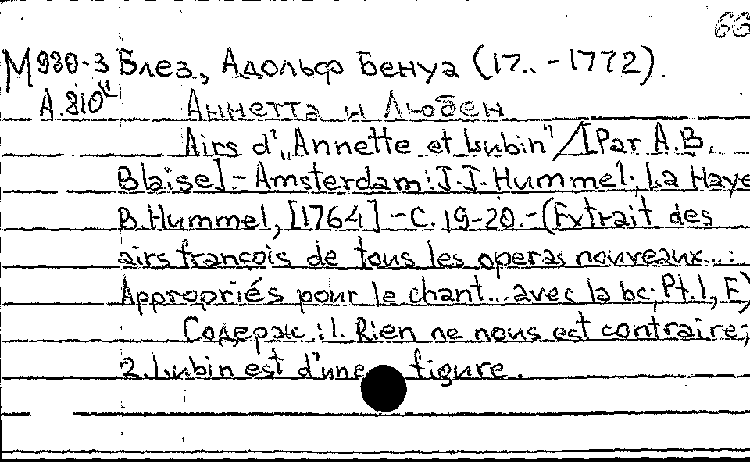 66
М980-3 Блез, Адольф Бенуа (17.. -1772).
А.310" Аннетта и Любен
Airs d'„Annette et Lubin"/[Par A.B.
Blaise].-Amsterdam:J.J.Hummel; La Haye
B.Hummel, [1764].-C.19-20.-(Extrait des
airs françois de tous les operas nouveaux...:
Appropriés pour le chant...avec la bc; Pt.1, E)
Содерж.:1. Rien ne nous est contraire;
2.Lubin est d'une figure.